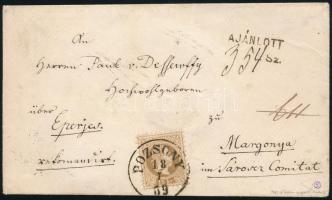 An
AJÁNLOTT
354 Sz.
Herrn Paul v. Dessewffy
Hochwohlgeboren
über
zu
Eperjes
Margonya
rekomandirt.
im Sároser Comitat
POZSONY
18
69